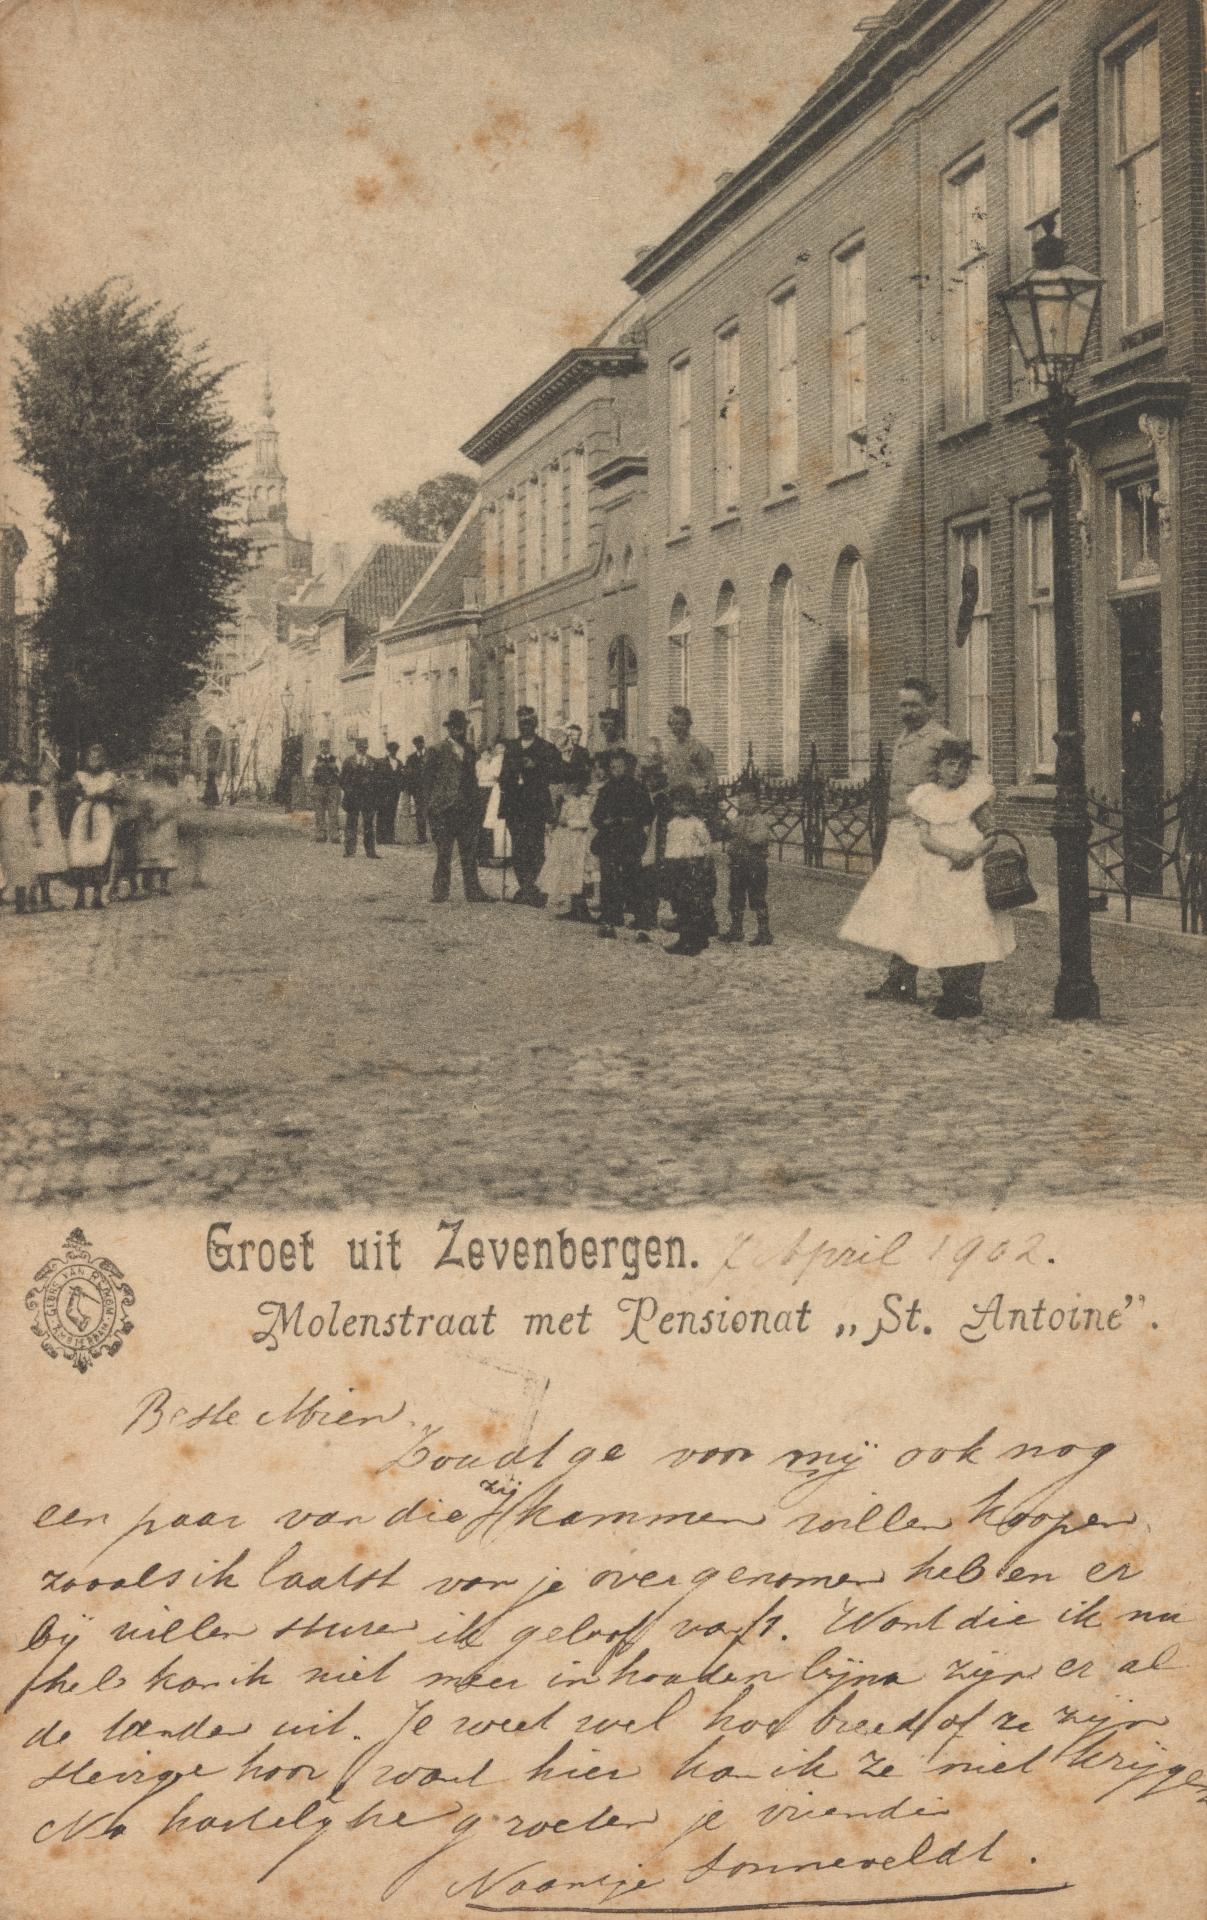 Groet uit Zevenbergen. 7 April 1902.
Molenstraat met Pensionat „St. Antoine”.
GEBRS VAN RIJKOM
Beste Mien.
Zoudt ge voor mij ook nog
een paar van die zij kammen willen koopen
zooals ik laatst van je overgenomen heb en er
bij willen sturen ik geloof van f1. Want die ik nu
heb kan ik niet meer inhouden bijna zijn er al
de tanden uit. Je weet wel hoe breed of ze zijn
stevige hoor want hier kan ik ze niet krijgen
Na hartelijke groeten je vriendin
Naantje Sonneveldt.